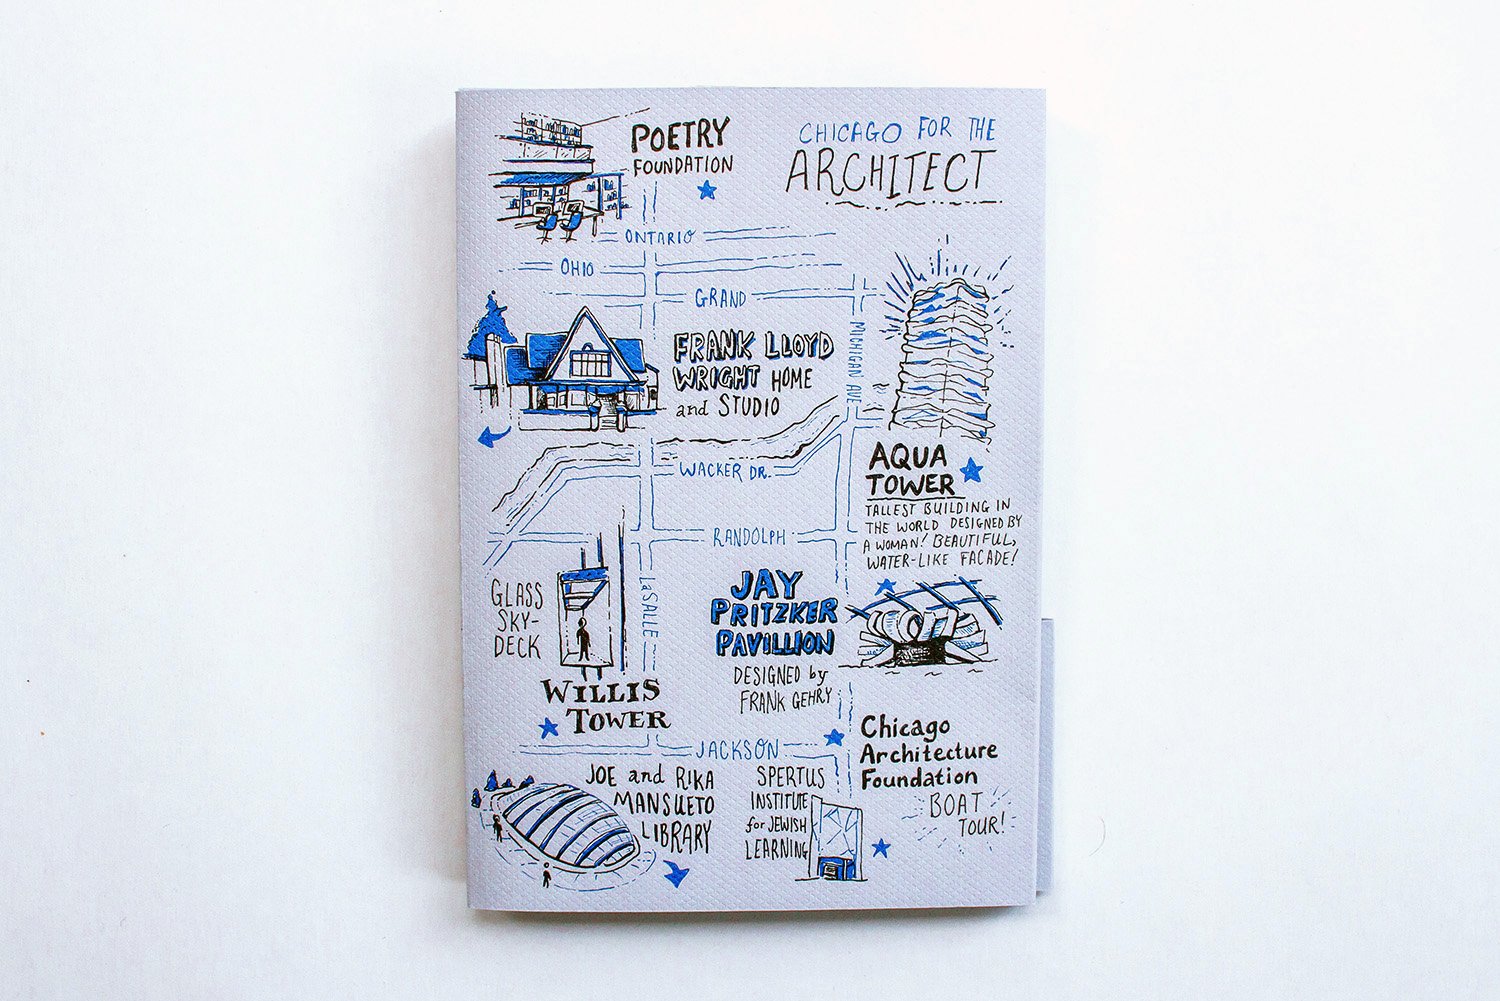 POETRY
FOUNDATION
CHICAGO FOR THE
ARCHITECT
ONTARIO
OHIO
GRAND
MICHIGAN AVE
FRANK LLOYD
WRIGHT HOME
and STUDIO
WACKER DR.
AQUA
TOWER
TALLEST BUILDING IN
THE WORLD DESIGNED BY
A WOMAN! BEAUTIFUL,
WATER-LIKE FACADE!
RANDOLPH
LaSALLE
GLASS
SKY-
DECK
WILLIS
TOWER
JAY
PRITZKER
PAVILLION
DESIGNED by
FRANK GEHRY
JACKSON
Chicago
Architecture
Foundation
BOAT
TOUR!
JOE and RIKA
MANSUETO
LIBRARY
SPERTUS
INSTITUTE
for JEWISH
LEARNING